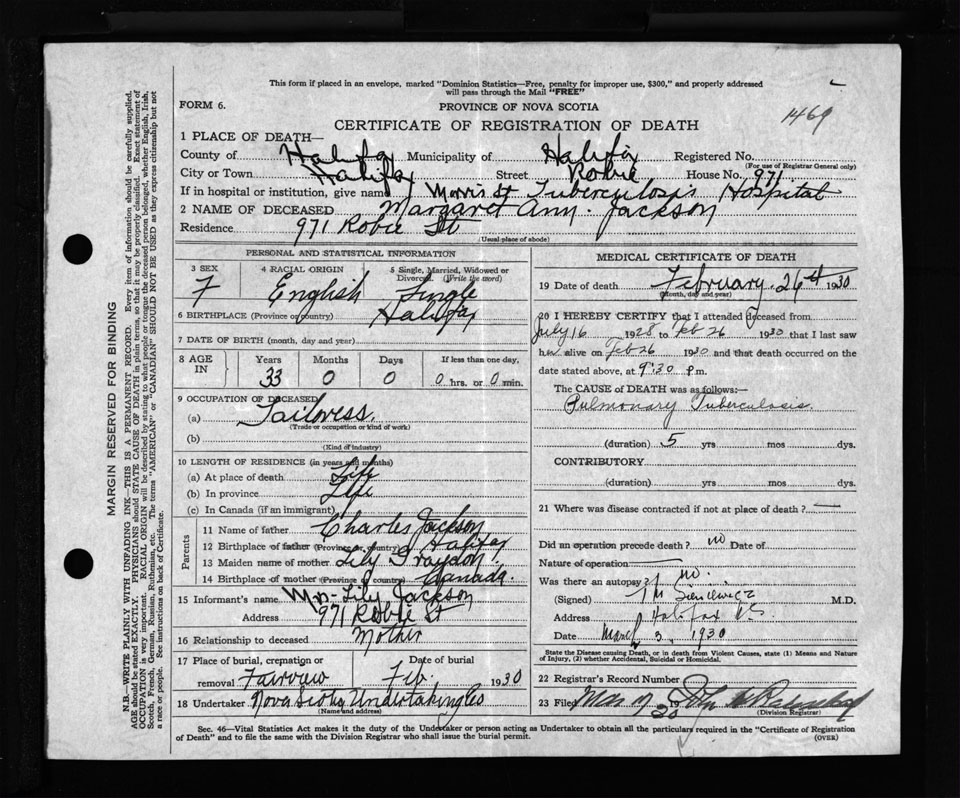 This form if placed in an envelope, marked "Dominion Statistics—Free, penalty for improper use, $300," and properly addressed
will pass through the Mail "FREE"
FORM 6.
PROVINCE OF NOVA SCOTIA
1469
CERTIFICATE OF REGISTRATION OF DEATH
1 PLACE OF DEATH—
County of Halifax Municipality of Halifax Registered No.
(For use of Registrar General only)
City or Town Halifax Street Robie House No. 971
If in hospital or institution, give name Morris St Tuberculosis Hospital
2 NAME OF DECEASED Margaret Ann Jackson
Residence 971 Robie St
(Usual place of abode)
PERSONAL AND STATISTICAL INFORMATION
3 SEX 4 RACIAL ORIGIN 5 Single, Married, Widowed or Divorced. (Write the word)
F English Single
6 BIRTHPLACE (Province or country) Halifax
7 DATE OF BIRTH (month, day and year)
8 AGE IN Years Months Days If less than one day,
33 0 0 0 hrs. or 0 min.
9 OCCUPATION OF DECEASED
(a) Tailoress.
(Trade or occupation or kind of work)
(b)
(Kind of industry)
10 LENGTH OF RESIDENCE (in years and months)
(a) At place of death Life
(b) In province Life
(c) In Canada (if an immigrant)
Parents
11 Name of father Charles Jackson
12 Birthplace of father (Province or country) Halifax
13 Maiden name of mother Lily Graydon
14 Birthplace of mother (Province of country) Canada.
15 Informant's name Mrs- Lily Jackson
Address 971 Robie St
16 Relationship to deceased Mother
17 Place of burial, cremation or removal Fairview Date of burial Feb. 1930
18 Undertaker Nova Scotia Undertaking Co
(Name and address)
MEDICAL CERTIFICATE OF DEATH
19 Date of death February 26th 1930
(Month, day and year)
20 I HEREBY CERTIFY that I attended deceased from
July 16 1928 to Feb 26 1930 that I last saw
her alive on Feb 26 1930 and that death occurred on the
date stated above, at 9:30 p.m.
The CAUSE of DEATH was as follows:—
Pulmonary Tuberculosis.
(duration) 5 yrs mos dys.
CONTRIBUTORY
(duration) yrs mos dys.
21 Where was disease contracted if not at place of death? —
Did an operation precede death? no Date of
Nature of operation —
Was there an autopsy? no.
(Signed) M.D.
Address Halifax N.S.
Date March 3, 1930
State the Disease causing Death, or in death from Violent Causes, state (1) Means and Nature
of Injury, (2) whether Accidental, Suicidal or Homicidal.
22 Registrar's Record Number
23 Filed Mar 17 1930
(Division Registrar)
Sec. 46—Vital Statistics Act makes it the duty of the Undertaker or person acting as Undertaker to obtain all the particulars required in the "Certificate of Registration
of Death" and to file the same with the Division Registrar who shall issue the burial permit. (OVER)
MARGIN RESERVED FOR BINDING
N.B.—WRITE PLAINLY WITH UNFADING INK—THIS IS A PERMANENT RECORD. Every item of information should be carefully supplied.
AGE should be stated EXACTLY. PHYSICIANS should STATE CAUSE OF DEATH in plain terms, so that it may be properly classified. Exact statement of
OCCUPATION is very important. RACIAL ORIGIN will be described by stating to what people or tongue the deceased person belonged, whether English, Irish,
Scotch, French, German, Russian, Ruthenian, etc. The terms "AMERICAN" or "CANADIAN" SHOULD NOT BE USED as they express citizenship but not
a race or people. See instructions on back of Certificate.